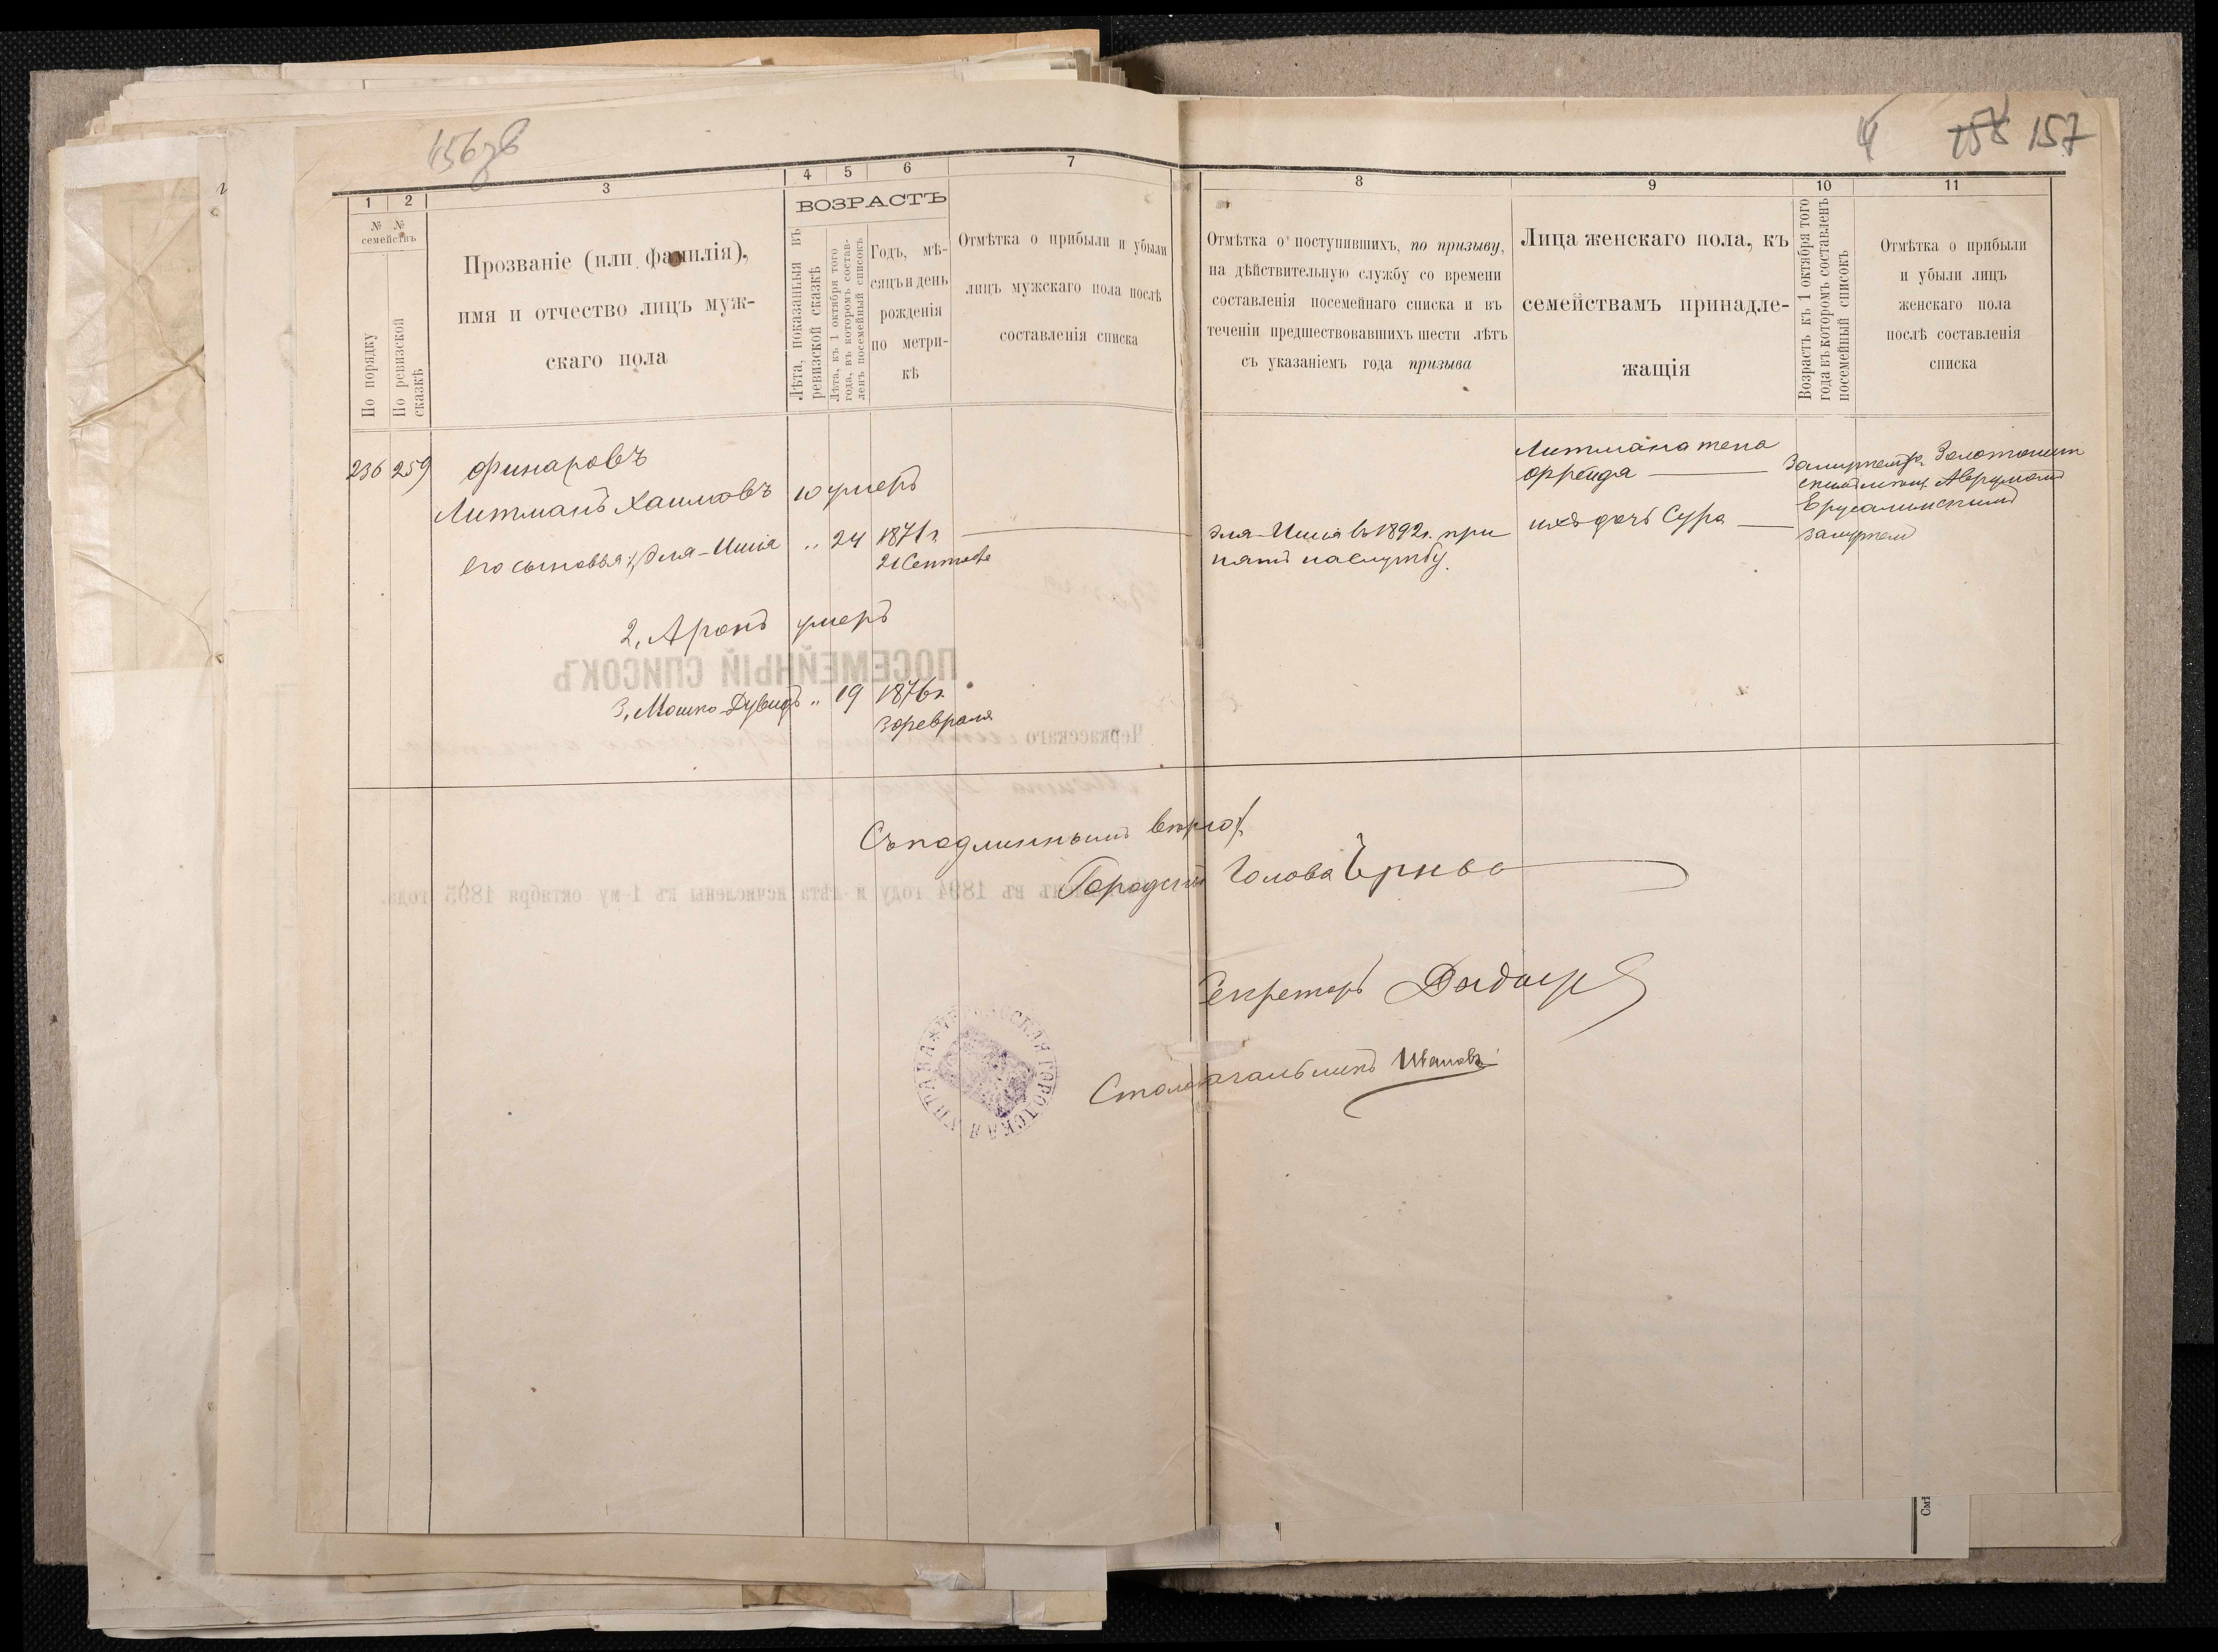 156 зв
157
1
2
3
4
5
6
7
8
9
10
11
№ №
семействъ
По порядку
По ревизской
сказкѣ
Прозваніе (или фамилія),
имя и отчество лицъ муж-
скаго пола
ВОЗРАСТЪ
Лѣта, показанныя въ
ревизской сказкѣ
Лѣта, къ 1 октября того
года, въ которомъ состав-
ленъ посемейный списокъ
Годъ, мѣ-
сяцъ и день
рожденія
по метри-
кѣ
Отмѣтка о прибыли и убыли
лицъ мужскаго пола послѣ
составленія списка
Отмѣтка о поступившихъ, по призыву,
на дѣйствительную службу со времени
составленія посемейнаго списка и въ
теченіи предшествовавшихъ шести лѣтъ
съ указаніемъ года призыва
Лица женскаго пола, къ
семействамъ принадле-
жащія
Возрастъ къ 1 октября того
года въ которомъ составленъ
посемейный списокъ
Отмѣтка о прибыли
и убыли лицъ
женскаго пола
послѣ составленія
списка
236 259 Финаровъ
Литманъ Хаимовъ 10 умеръ
его сыновья: 1, Эля-Шиія " 24 1871 г.
21 Сентября
2, Аронъ умеръ
3, Мошко-Дувидъ " 19 1876 г.
3 февраля
Эля-Шиія въ 1892 г. при
нятъ на службу.
Литмана жена
Фрейда
ихъ дочь Сура
Замужемъ Золотонош
скимъ мѣщ. Аврумомъ
Ерусалимскимъ
замужем
Съ подлиннымъ вѣрно:
Городской Голова
Секретарь
Столоначальникъ Ивановъ
ЧЕРКАССКАЯ ГОРОДСКАЯ УПРАВА
ПОСЕМЕЙНЫЙ СПИСОКЪ
Черкасскаго
въ 1894 году и лѣта исчислены къ 1-му октября 1895 года.